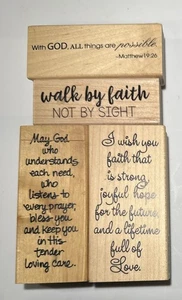 With GOD, ALL things are possible.
-Matthew 19:26
walk by faith
NOT BY SIGHT
May God
who
understands
each need,
who
listens to
every prayer,
bless you
and keep you
in His
tender
Loving care.
I wish you
faith that
is strong,
joyful hope
for the future,
and a lifetime
full of
Love.